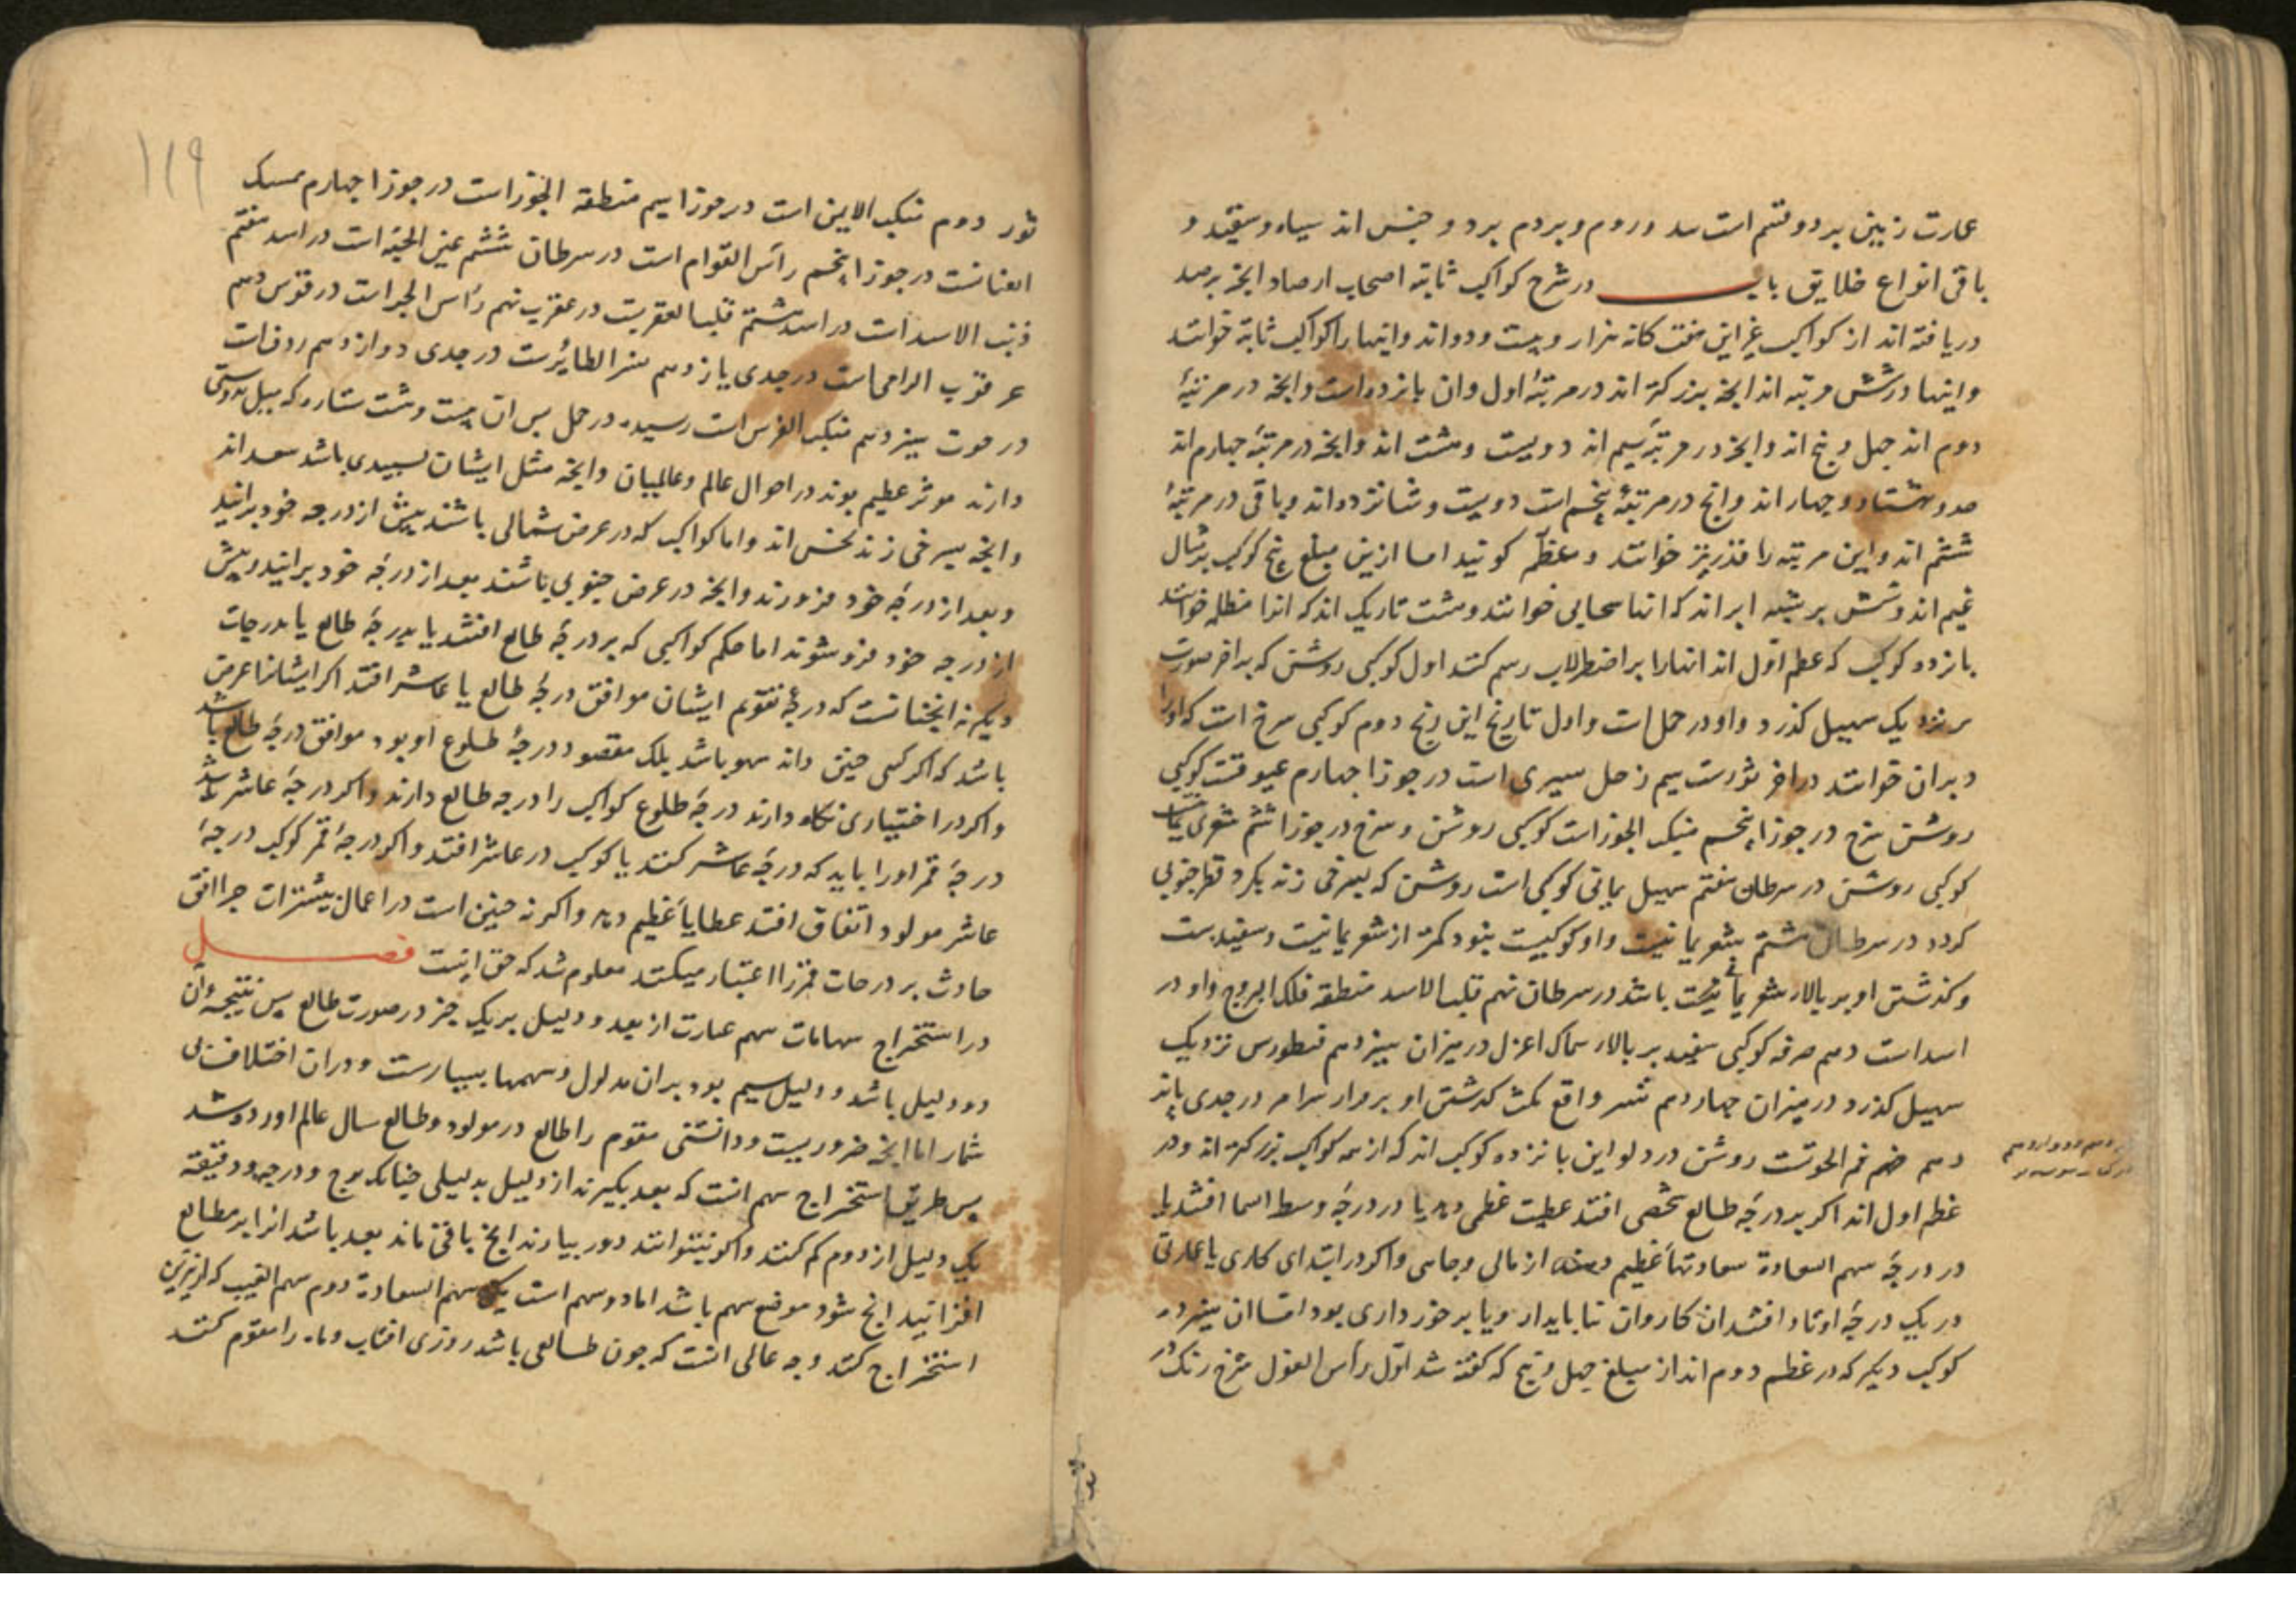 عمارت زمین بر دو قسم است سد و روم و بردم بر دو جنس اند سیاه و سفید و
باقی انواع خلایق باب در شرح کواکب ثابته اصحاب ارصاد انچه برصد
دریافته اند از کواکب غیر این هفت کانه هزار و بیست و دو اند و اینها را کواکب ثابته خوانند
و اینها در شش مرتبه اند انچه بزرکتر اند در مرتبهٔ اول و ان پانزده است و انچه در مرتبهٔ
دوم اند چهل و پنج اند و انچه در مرتبهٔ سیم اند دویست و هشت اند و انچه در مرتبهٔ چهارم اند
صد و هشتاد و چهار اند و انچ در مرتبهٔ پنجم است دویست و شانزده اند و باقی در مرتبهٔ
ششم اند و این مرتبه را قدر نیز خوانند و عظم کویند اما ازین مبلغ پنج کوکب بر مثال
غیم اند و شش بر شبه ابر اند که انها سحابی خوانند و هشت تاریک اند که انرا مظلمه خوانند
پانزده کوکب که عظم اول اند انها را بر اضطرلاب رسم کنند اول کوکبی روشن که بر اخر صورت
بر نزدیک سهیل گذرد و او در حمل است و اول تاریخ این زیج دوم کوکبی سرخ است که او را
دبران خوانند در اخر ثورست سیم زحل سیری است در جوزا چهارم عیوقست کوکبی
روشن سرخ در جوزا پنجم منکب الجوزاست کوکبی روشن و سرخ در جوزا ششم شعری یمانیه
کوکبی روشن در سرطان هفتم سهیل یمانی کوکبی است روشن که بسرخی زند بکرد قطر جنوبی
کردد در سرطان هشتم شعر یمانیست و او کوکبیست بنود کمتر از شعر یمانیت و سفیدست
و کذشتن او بر بالار شعر یمانیت باشد در سرطان نهم قلب الاسد منطقه فلک البروج و او در
اسد است دهم صرفه کوکبی سفید بر بالار سماک اعزل در میزان سیزدهم قنطورس نزدیک
سهیل کذرد در میزان چهاردهم نسر واقع کذشتن او بر در جدی پانز
دهم فم الحوتست روشن در دلو این پانزده کوکب اند که از همه کواکب بزرکتر اند و در
عظم اول اند اکر بر درجهٔ طالع شخصی افتد عطیت عظمی دهد یا در درجهٔ وسط السما افتند یا
در درجهٔ سهم السعادة سعادتهاء عظیم دهند از مالی و جاهی و اکر در ابتداء کاری یا عمارتی
در یک درجهٔ اوتاد افتند ان کار و ان بنا پایدار و یا برخورداری بود اما ان سیزده
کوکب دیکر که در عظم دوم اند از مبلغ چهل و پنج که کفته شد اول رأس الغول سرخ رنک در
۱۱۹
ثور دوم منکب الایمن است در جوزا سیم منطقة الجوزاست در جوزا چهارم ممسک
العنانست در جوزا پنجم رأس التوام است در سرطان ششم عین الحیه است در اسد هفتم
ذنب الاسد است در اسد هشتم قلب العقربست در عقرب نهم رأس الجراست در قوس دهم
عرقوب الرامی است در جدی یازدهم نسر الطایرست در جدی دوازدهم ردف است
در حوت سیزدهم منکب الفرس است رسیده در حمل پس ان بیست و هشت ستاره که میل بدوستی
دارند موثر عظیم بوند در احوال عالم و عالمیان و انچه مثل ایشان بسپیدی باشد سعد اند
و انچه بسرخی زند نحس اند و اما کواکب که در عرض شمالی باشند پیش از درجه خود برایند
و بعد از درجهٔ خود فرو روند و انچه در عرض جنوبی باشند بعد از درجهٔ خود برایند و پیش
از درجه خود فرو شوند اما حکم کواکبی که بر درجهٔ طالع افتند یا بدرجهٔ طالع یا بدرجات
دیکر نه انچنانست که درجهٔ تقویم ایشان موافق درجهٔ طالع یا عاشر افتد اکر ایشانرا عرض
باشد که اکر کسی چنین داند سهو باشد بلک مقصود درجهٔ طلوع او بود موافق درجهٔ طالع باشد
و اکر در اختیاری نکاه دارند درجهٔ طلوع کواکب را درجه طالع دارند و اکر درجهٔ عاشر باشد
درجهٔ ممر او را باید که درجهٔ عاشر کنند یا کوکب در عاشر افتد و اکر درجهٔ ممر کوکب درجهٔ
عاشر مولود اتفاق افتد عطایاء عظیم دهد و اکر نه چنین است در اعمال تسییرات چرا افق
حادث بر درجات ممر را اعتبار میکنند معلوم شد که حق اینست فصل
در استخراج سهامات سهم عبارت از بعد دو دلیل بر یک چیز در صورت طالع پس نتیجه ان
دو دلیل باشد و دلیل سیم بود بران مدلول و سهمها بسیارست و دران اختلاف بی
شمار اما انچه ضروریست و دانستنی مقوم را طالع در مولود و طالع سال عالم اورده شد
پس طریق استخراج سهم انست که بعد بکیرند از دلیل بدلیلی چنانک برج و درجه و دقیقه
یک دلیل از دوم کم کنند و اکر نتوانند دور بیارند انچ باقی ماند بعد باشد انرا بر مطالع
افزایند انچ شود موضع سهم باشد اما دو سهم است یکی سهم السعادة دوم سهم الغیب که از نیرین
استخراج کنند وجه عالی انست که چون طالعی باشد روزی افتاب و ماه را مقوم کنند